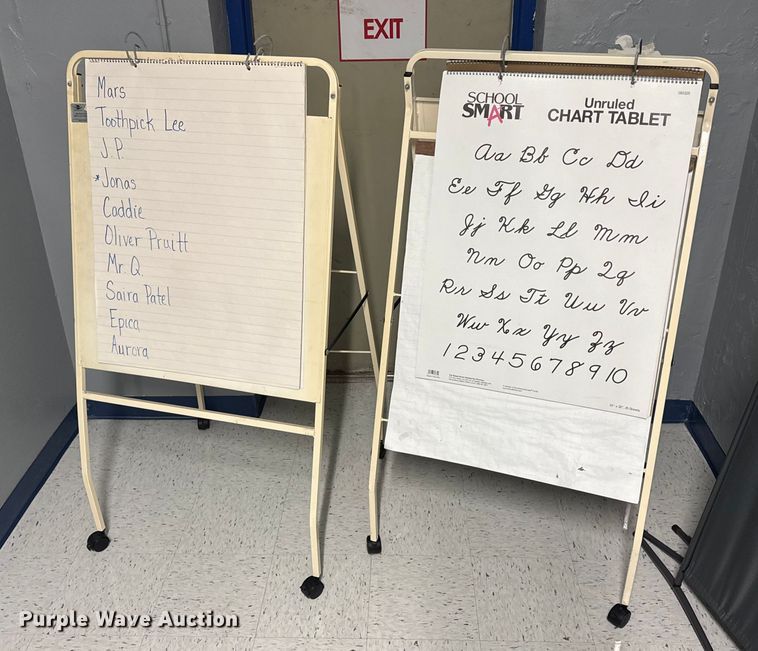 EXIT
Mars
Toothpick Lee
J.P.
*Jonas
Caddie
Oliver Pruitt
Mr. Q.
Saira Patel
Epica
Aurora
SCHOOL
SMART
Unruled
CHART TABLET
Aa Bb Cc Dd
Ee Ff Gg Hh Ii
Jj Kk Ll Mm
Nn Oo Pp Qq
Rr Ss Tt Uu Vv
Ww Xx Yy Zz
1 2 3 4 5 6 7 8 9 10
Purple Wave Auction